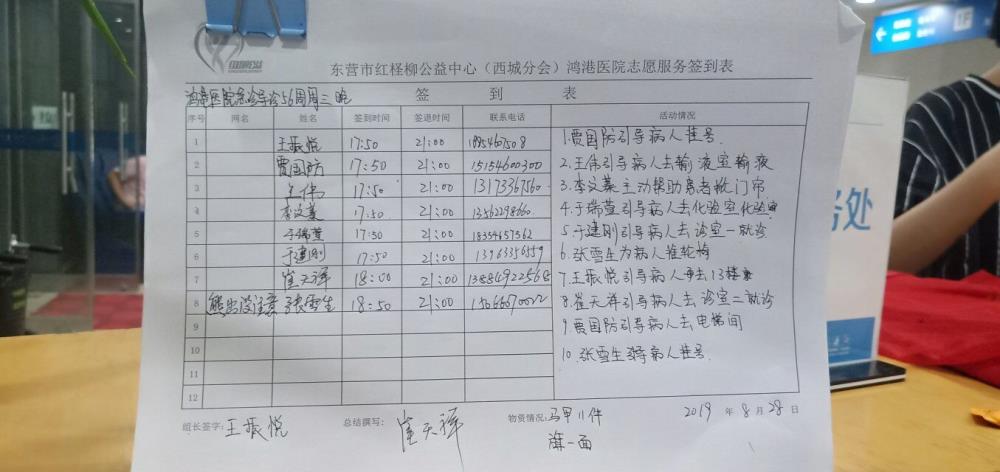 1F
东营市红柽柳公益中心（西城分会）鸿港医院志愿服务签到表
鸿港医院急诊导诊56周周三晚
签 到 表
序号 网名 姓名 签到时间 签退时间 联系电话 活动情况
1 王振悦 17:50 21:00
2 贾国防 17:50 21:00 15154600300
3 王伟 17:50 21:00 13173367560
4 李文慕 17:50 21:00 13562298660
5 于瑞萱 17:50 21:00 18354657362
6 于建刚 17:50 21:00 13963356559
7 崔天祥 18:00 21:00 13884922568
8 熊出没注意 张雪生 18:50 21:00
9
10
11
12
1.贾国防引导病人挂号.
2.王伟引导病人去输液室输液
3.李文慕主动帮助患者掀门帘
4.于瑞萱引导病人去化验室化验
5.于建刚引导病人去诊室一就诊
6.张雪生为病人推轮椅
7.王振悦引导病人去13楼
8.崔天祥引导病人去诊室二就诊
9.贾国防引导病人去电梯间
10.张雪生引导病人挂号.
组长签字：王振悦 总结撰写：崔天祥 物资情况：马甲11件 2019 年 8 月 28 日
旗一面
务处